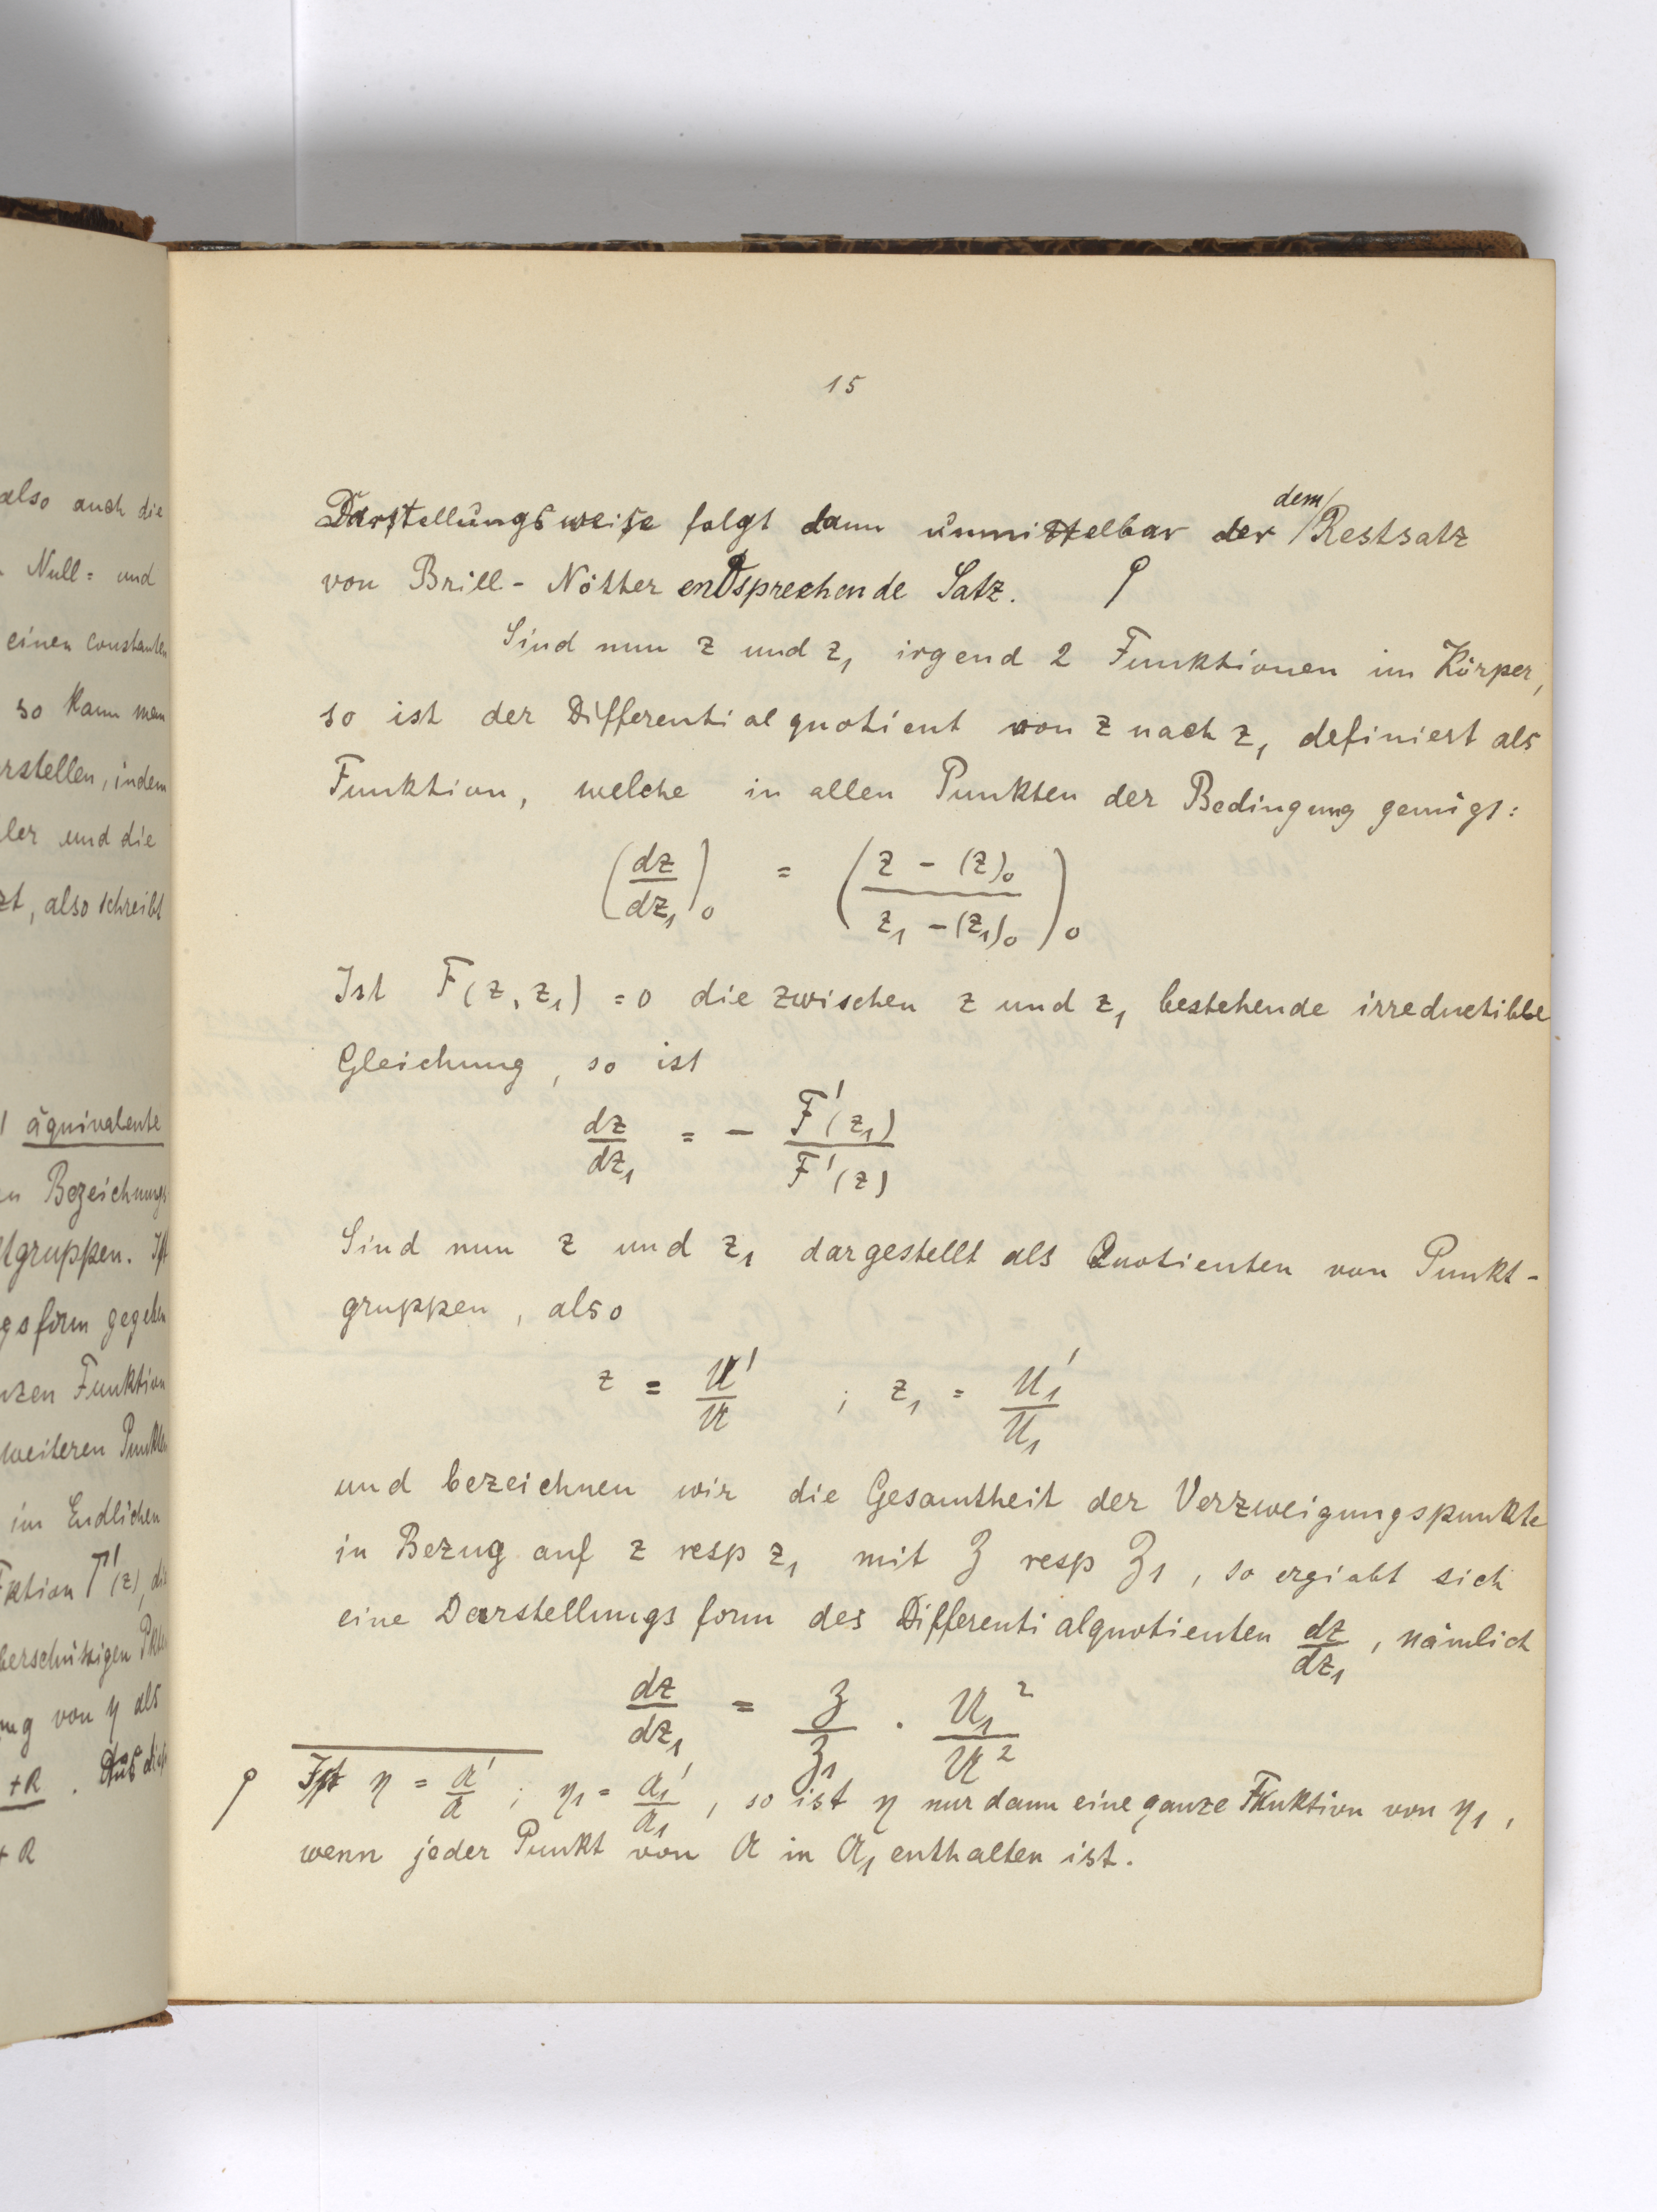 also auch die
Null= und
einen constanten
so kann man
rstellen, indem
ler und die
zt, also schreibt
äquivalente
Bezeichnungs
tgruppen. Ist
gsform gegeben
nzen Funktion
weiteren Punkten
im Endlichen
ktion Γ'(z), die
berschüssigen Pkten
ung von η als
+R . Aus
+R
15
Darstellungsweise folgt dann unmittelbar der dem Restsatz
von Brill - Nöther entsprechende Satz. ϙ
Sind nun z und z₁ irgend 2 Funktionen im Körper,
so ist der Differentialquotient von z nach z₁ definiert als
Funktion, welche in allen Punkten der Bedingung genügt:
(dz/dz₁)₀ = ((z - (z)₀)/(z₁ - (z₁)₀))₀
Ist F(z, z₁) = 0 die zwischen z und z₁ bestehende irreductible
Gleichung, so ist
dz/dz₁ = - F'(z₁)/F'(z)
Sind nun z und z₁ dargestellt als Quotienten von Punkt-
gruppen, also
z = U'/U ; z₁ = U₁'/U₁
und bezeichnen wir die Gesamtheit der Verzweigungspunkte
in Bezug auf z resp z₁ mit Z resp Z₁, so ergiebt sich
eine Darstellungsform des Differentialquotienten dz/dz₁, nämlich
dz/dz₁ = Z/Z₁ . U₁²/U²
ϙ Ist η = a'/a ; η₁ = a₁'/a₁, so ist η nur dann eine ganze Funktion von η₁,
wenn jeder Punkt von a in a₁ enthalten ist.